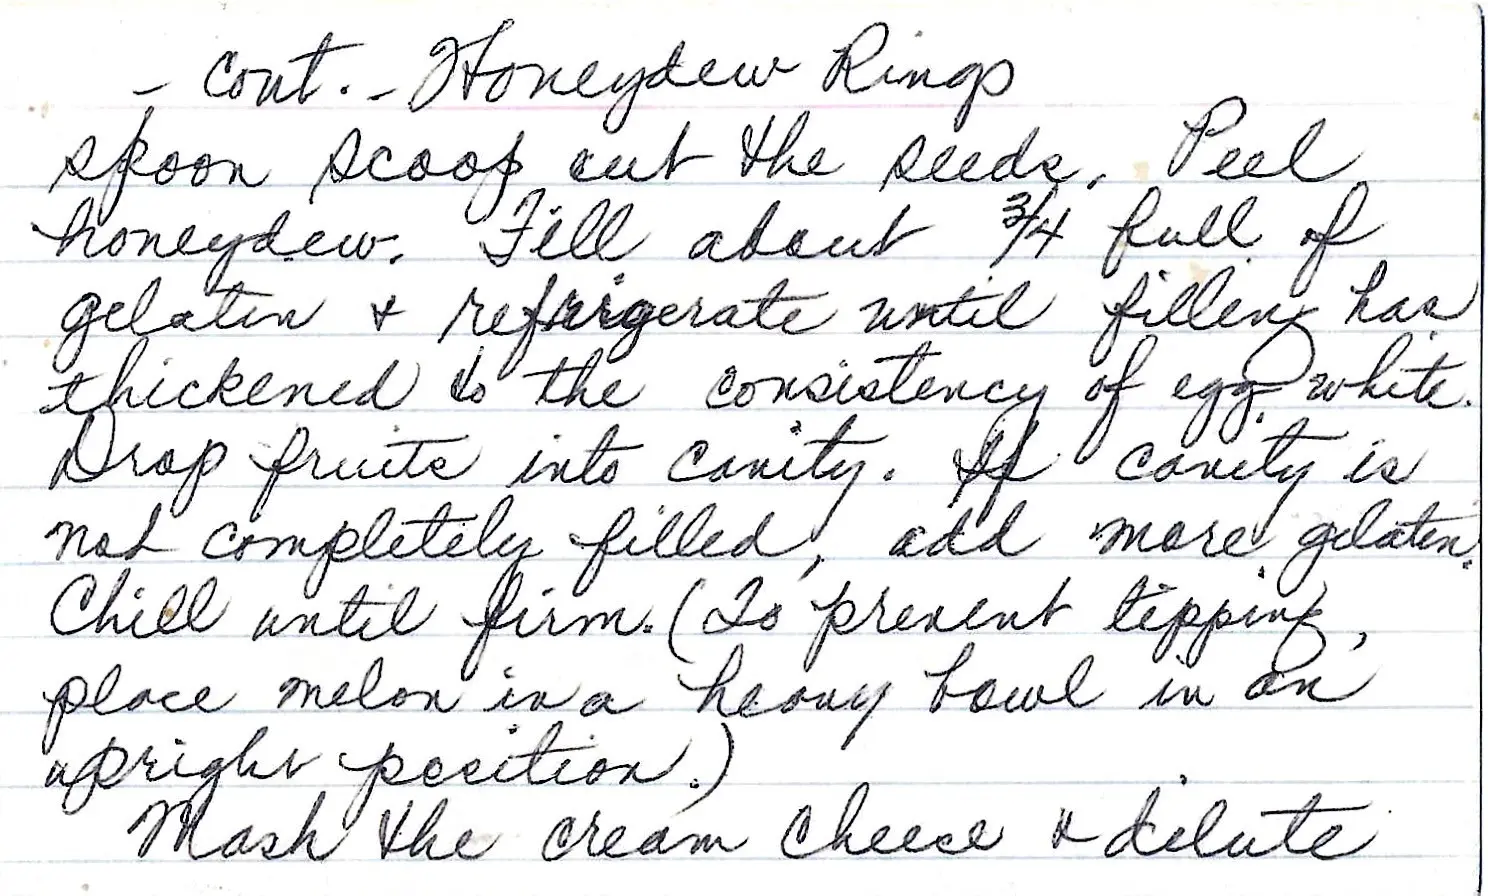 - Cont. - Honeydew Rings
spoon scoop out the seeds. Peel
honeydew. Fill about 3/4 full of
gelatin & refrigerate until filling has
thickened to the consistency of egg white.
Drop fruits into cavity. If cavity is
not completely filled, add more gelatin.
Chill until firm. (To prevent tipping,
place melon in a heavy bowl in an
upright position.)
Mash the cream cheese & dilute